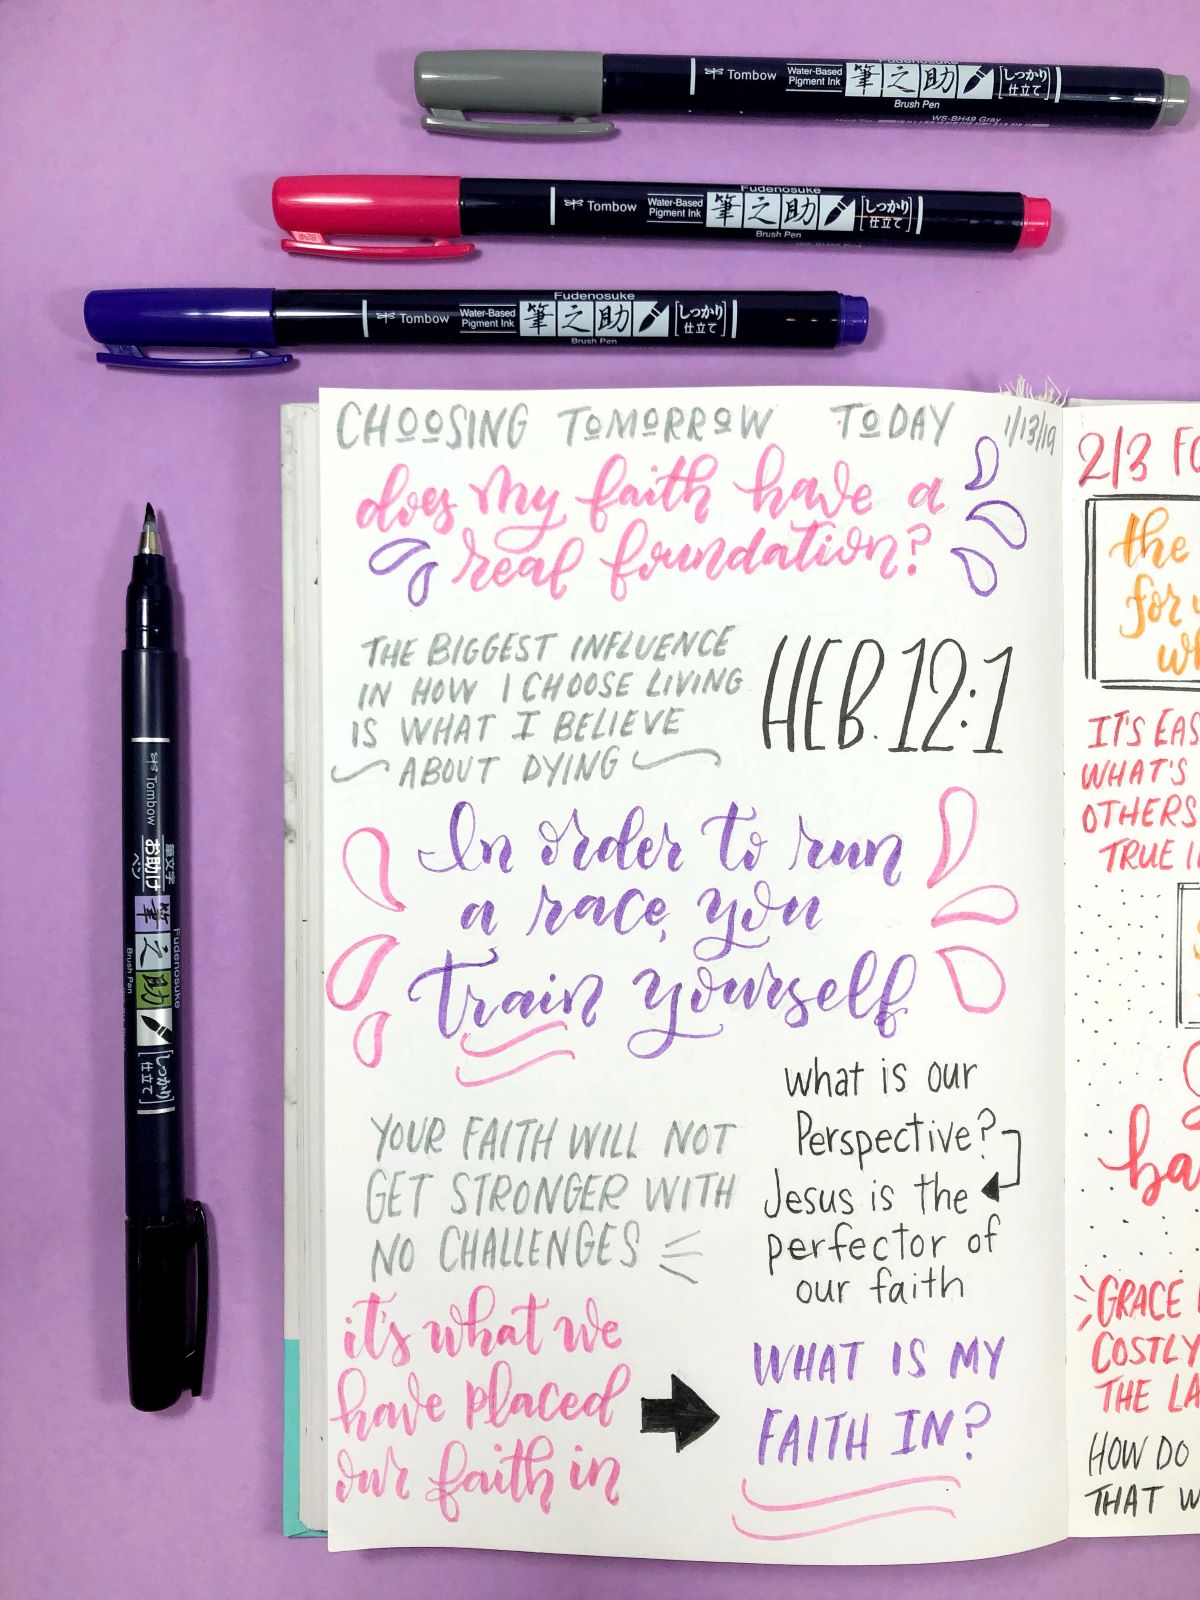 Fudenosuke
Tombow
Water-Based
Pigment Ink
筆之助
しっかり
仕立て
Brush Pen
WS-BH49 Gray
Fudenosuke
Tombow
Water-Based
Pigment Ink
筆之助
しっかり
仕立て
Brush Pen
Fudenosuke
Tombow
Water-Based
Pigment Ink
筆之助
しっかり
仕立て
Brush Pen
Tombow
筆文字
お助け
ペン
Fudenosuke
筆之助
Brush Pen
しっかり
仕立て
CHOOSING TOMORROW TODAY 1/13/19
does my faith have a
real foundation?
THE BIGGEST INFLUENCE
IN HOW I CHOOSE LIVING
IS WHAT I BELIEVE
ABOUT DYING
HEB. 12:1
In order to run
a race, you
train yourself
what is our
Perspective?
Jesus is the
perfector of
our faith
YOUR FAITH WILL NOT
GET STRONGER WITH
NO CHALLENGES
it's what we
have placed
our faith in
WHAT IS MY
FAITH IN?
2/3
the
for
IT'S
WHAT'S
OTHERS
TRUE
GRACE
COSTLY
THE
HOW DO
THAT